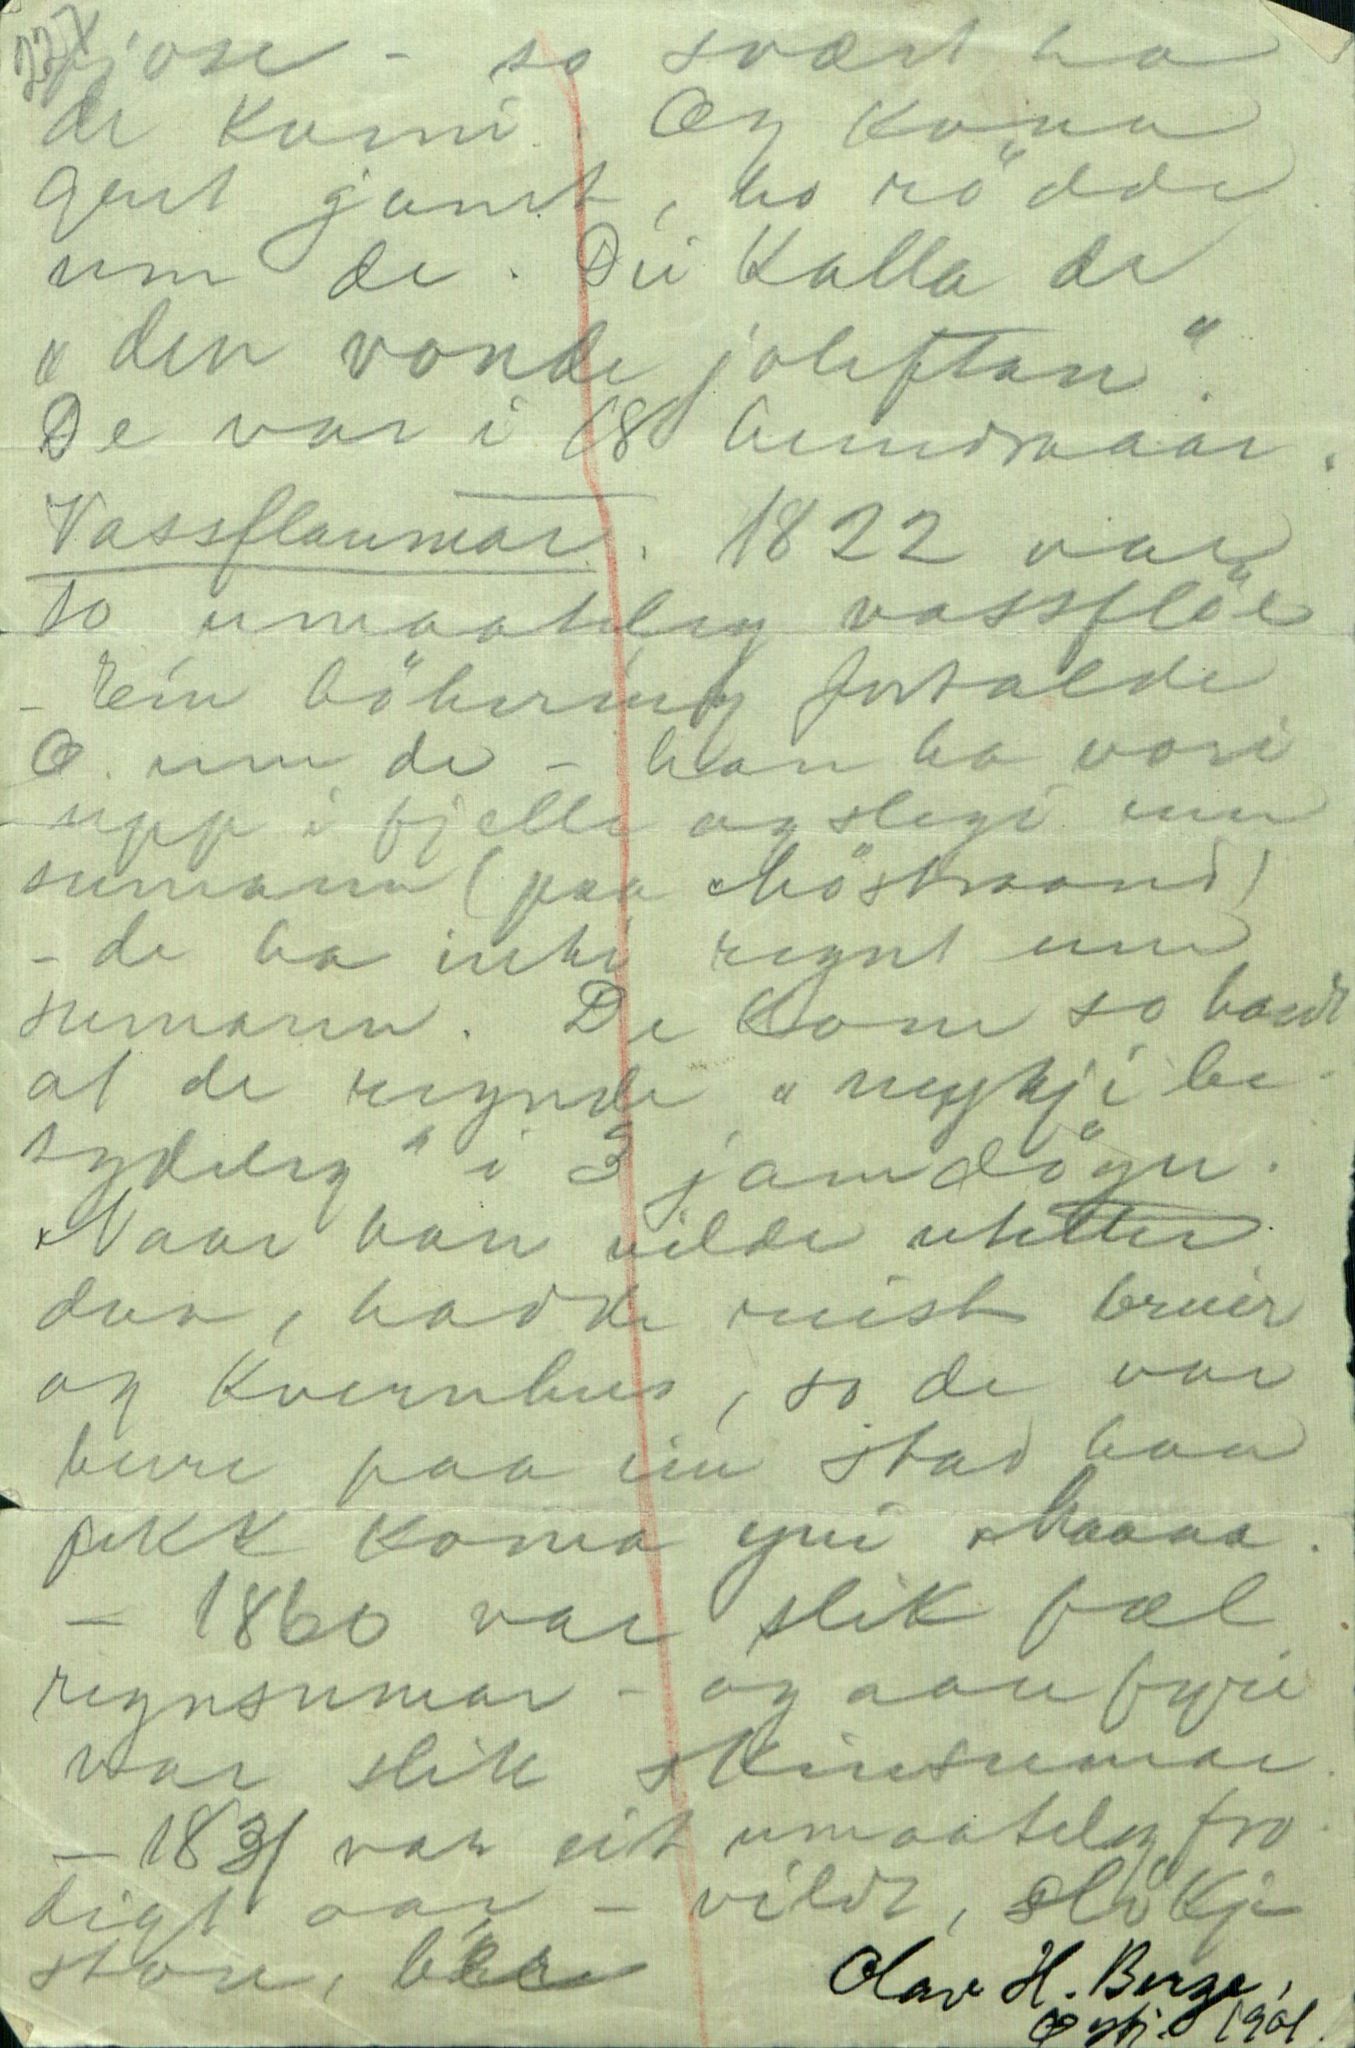 227
fjose - so svært ha
de komi. Og kona
gret jamt, ho rödde
um de. Dei kalla de
"den vonde joleftan".
De var i 18 hundraaar.
Vassflaumar. 1822 var
so umaateleg vassflö
- Ein höhering fortalde
O. um de - han ha vori
upp i fjelle og slegi um
sumarn (paa Möstraand)
- de ha inki regnt um
sumarn. De kom so hardt
at de regnde "mykji be-
tydeleg" i 3 jamdögr.
Naar han vilde utetter
daa, hadde reist bruir
og kvernhus, so de var
bere paa ein stad han
fekk koma yvi Maana.
- 1860 var slik fæl
regnsumar - og aari fyri
var slik skinsumar.
- 1831 var eit umaateleg fro-
digt aar - vildt, slökje
store,
Olav H. Berge,
Öyfj. 1901.